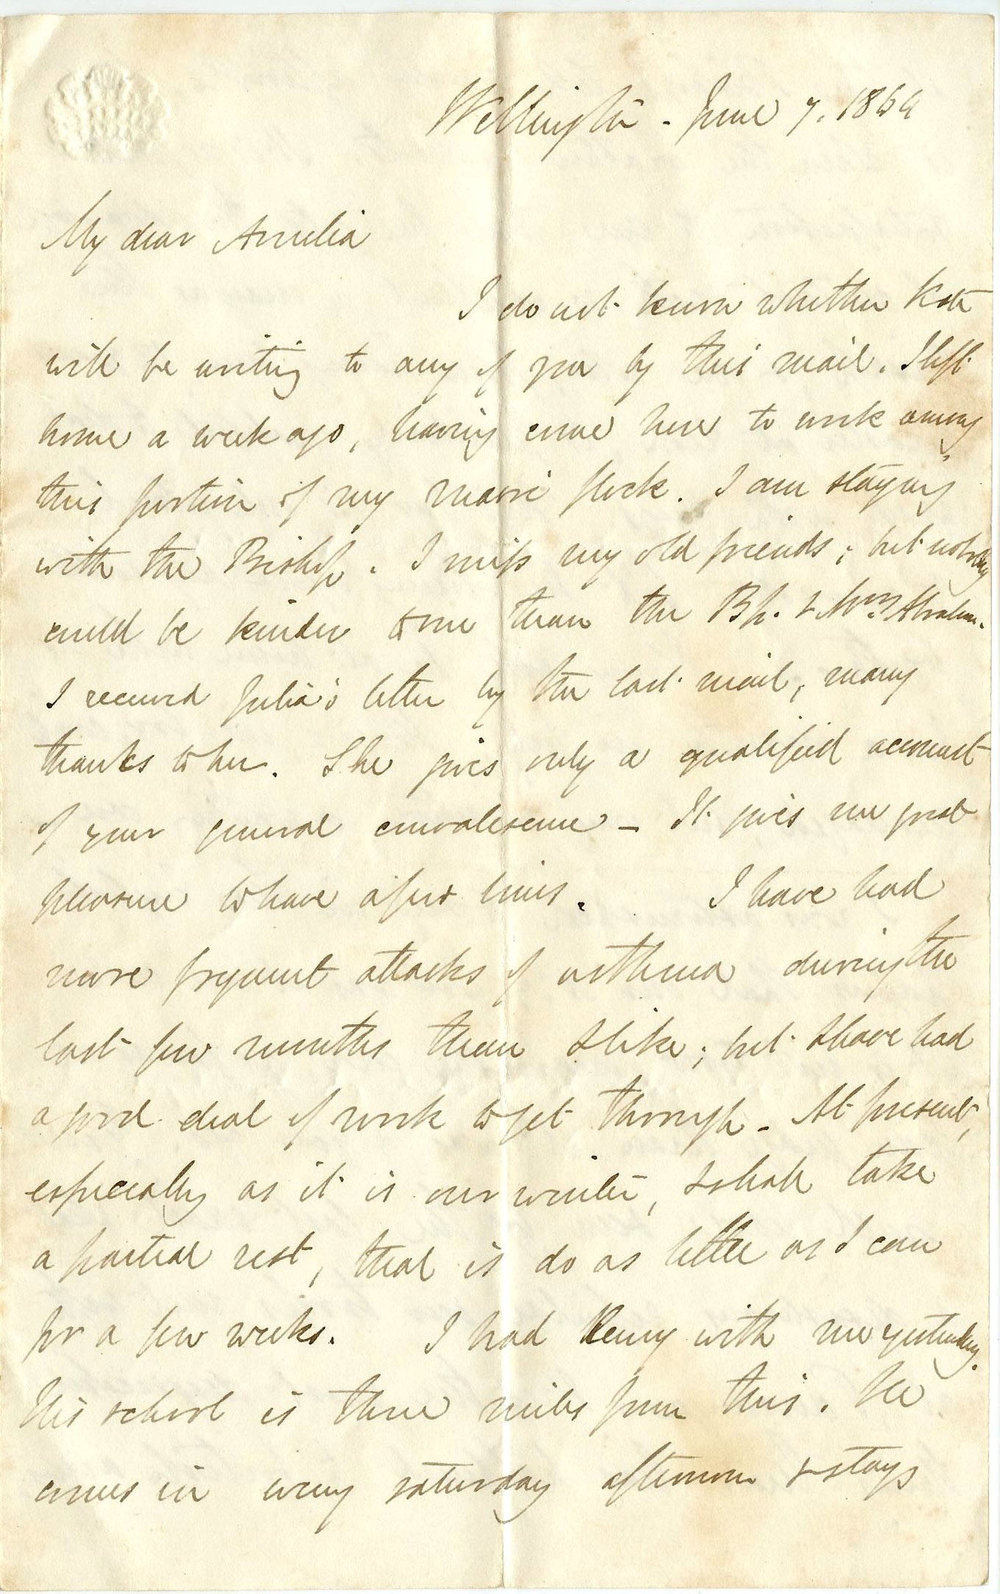 Wellington - June 7. 1864
My dear Amelia
I do not know whether Kate
will be writing to any of you by this mail. I left
home a week ago, having come here to work among
this portion of my maori flock. I am staying
with the Bishop. I miss my old friends; but nobody
could be kinder to me than the Bp. & Mrs Abraham.
I received Julia's letter by the last mail, many
thanks to her. She gives only a qualified account
of your general convalescence - It gives me great
pleasure to have a few lines. I have had
more frequent attacks of asthma during the
last few months than I like; but I have had
a good deal of work to get through - At present,
especially as it is our winter, I shall take
a partial rest, that is do as little as I can
for a few weeks. I had Henry with me yesterday.
His school is three miles from this. He
comes in every saturday afternoon & stays